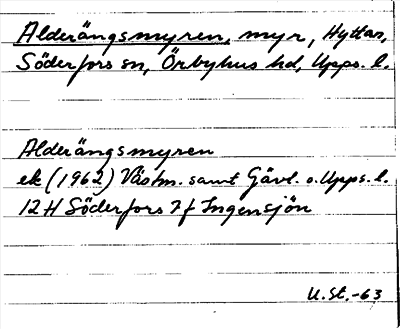 Alderängsmyren, myr, Hyttan,
Söderfors sn, Örbyhus hd, Upps. l.
Alderängsmyren
ek (1962) Västm. samt Gävl. o. Upps. l.
12H Söderfors 7f Ingensjön
U.St.-63